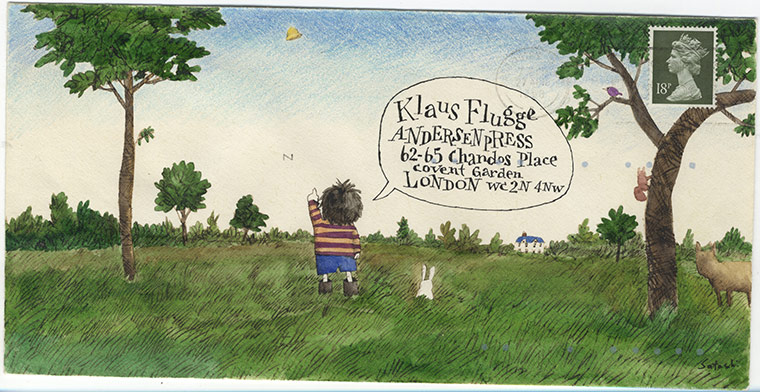 Klaus Flugge
ANDERSEN PRESS
62-65 Chandos Place
Covent Garden
LONDON WC2N 4NW
18P